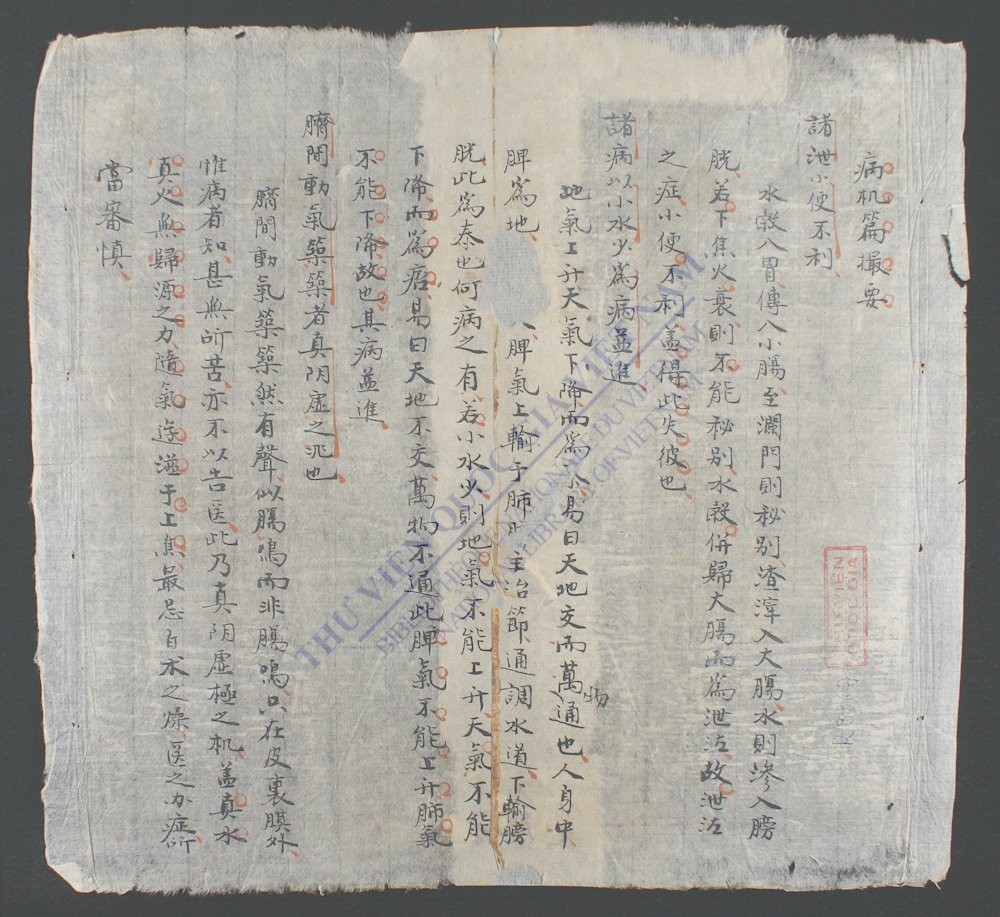 病机篇撮要
諸泄小便不利
水穀入胃傳入小腸至瀾門則秘别渣滓入大腸水則滲入膀
胱若下焦火衰則不能秘别水穀併歸大腸而爲泄泻故泄泻
之症小便不利盖得此失彼也
諸病以小水少爲病並進
地氣上升天氣下降而爲 易曰天地交而萬物通也人身中
脾爲地 脾氣上輸于肺肺主治節通調水道下輸膀
胱此爲泰也何病之有若小水少則地氣不能上升天氣不能
下降而爲否易曰天地不交萬物不通此脾氣不能上升肺氣
不能下降故也其病並進
臍間動氣築築者真阴虚之 也
臍間動氣築築然有聲似腸鳴而非腸鳴只在皮裏膜外
惟病者知甚無所苦亦不以告医此乃真阴虚極之机盖真水
真火無歸源之力隨氣 溢于上焦最忌白朮之燥医之 症所
當審慎
THƯ VIỆN QUỐC GIA VIỆT NAM
BIBLIOTHÈQUE NATIONALE DU VIETNAM
NATIONAL LIBRARY OF VIETNAM
THƯ VIỆN
QUỐC GIA